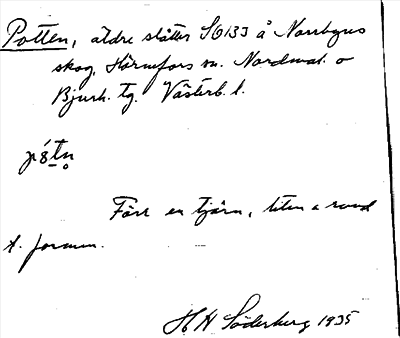 Potten, äldre slåtter SO133 å Norrbyns
skog, Hörnefors sn. Nordmal. o
Bjurh. tg. Västerb. l.
Förr en tjärn, liten o rund
t. formen.
H H Söderberg 1935